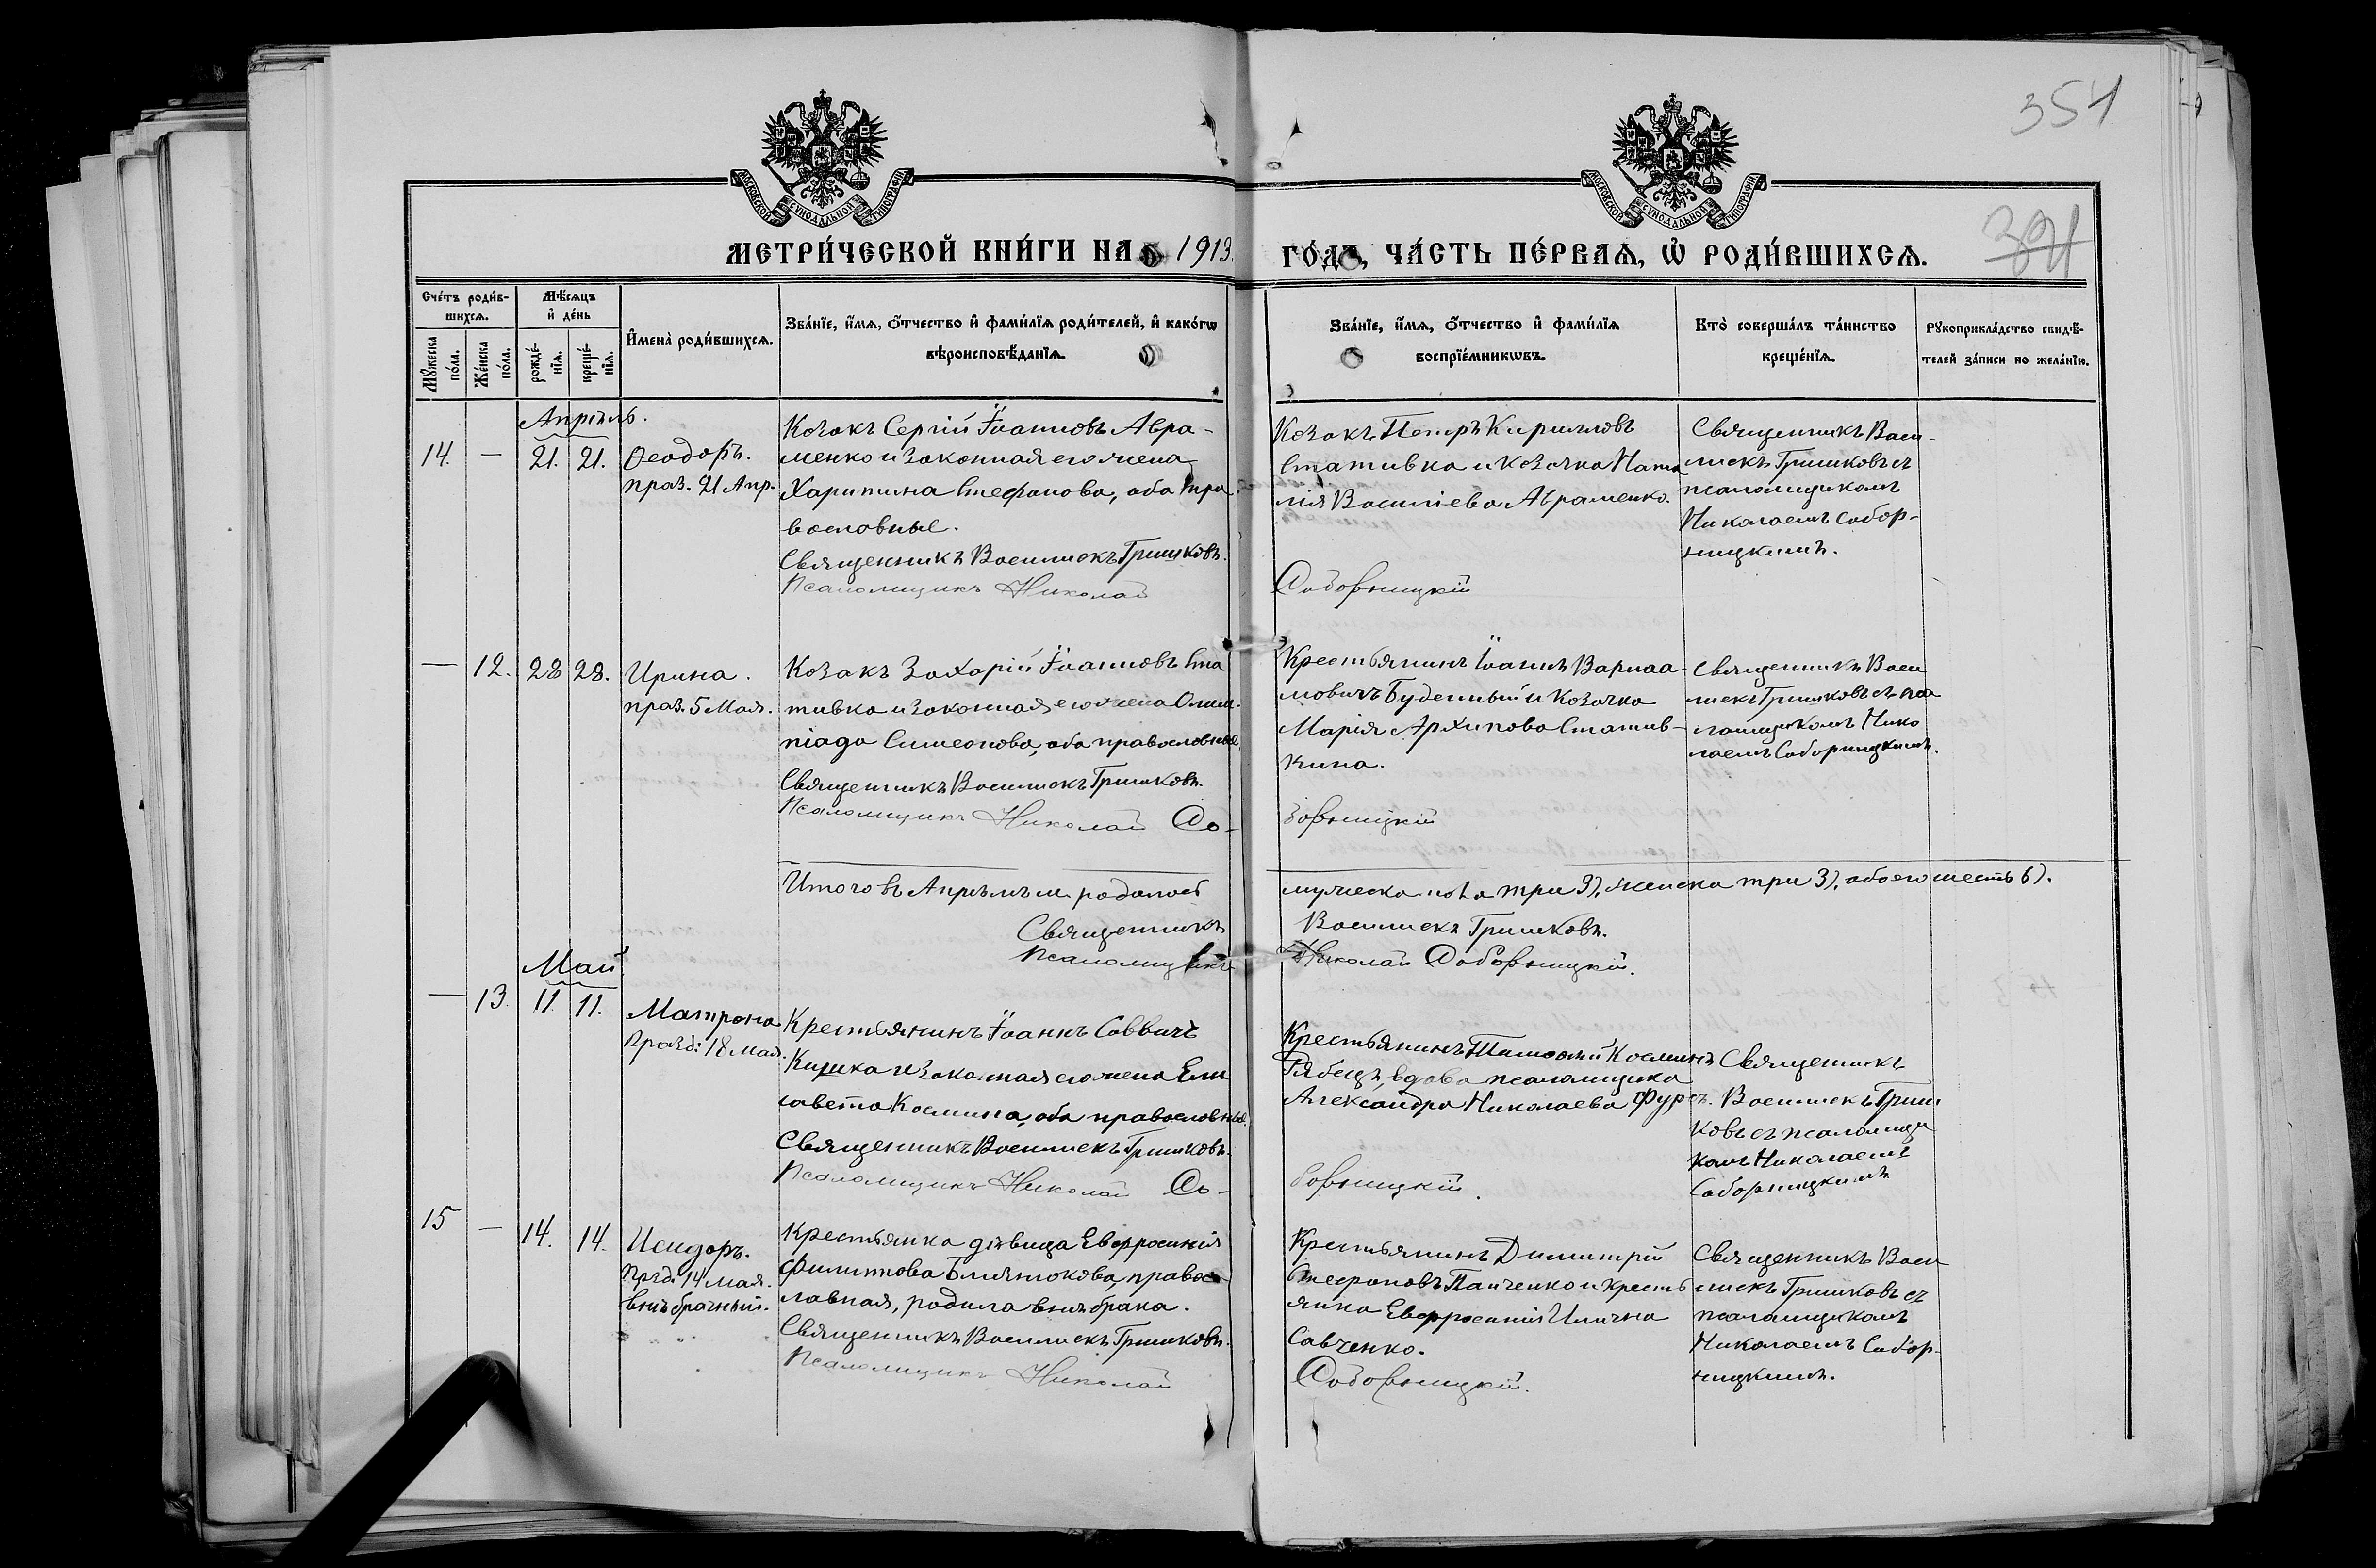 354
391
МОСКОВСКОЙ СѴНОДАЛЬНОЙ ТИПОГРАФІИ
МОСКОВСКОЙ СѴНОДАЛЬНОЙ ТИПОГРАФІИ
МЕТРИ́ЧЕСКОЙ КНИ́ГИ НА 1913. ГО́ДЪ, ЧА́СТЬ ПЕ́РВАѦ, Ѡ҆ РОДИ́ВШИХСѦ.
Сче́тъ роди́в-
шихсѧ.
Мꙋ́жеска по́ла.
Же́нска по́ла.
Мѣ́сѧцъ
и҆ де́нь
рожде́-
нїѧ.
креще́-
нїѧ.
И҆мена̀ роди́вшихсѧ.
Зва́нїе, и҆́мѧ, ѻ҆́тчество и҆ фами́лїѧ роди́телей, и҆ како́гѡ
вѣроисповѣ́данїѧ.
Зва́нїе, и҆́мѧ, ѻ҆́тчество и҆ фами́лїѧ
воспрїе́мникѡвъ.
Кто̀ соверша́лъ та́инство
креще́нїѧ.
Рꙋкоприкла́дство свидѣ́-
телей за́писи по жела́нїю.
Апрѣль.
14. — 21. 21.
Ѳеодоръ.
праз. 21 Апр.
Козакъ Сергій Іоанновъ Авра-
менко и законная его жена
Харитина Стефанова, оба пра-
вославные.
Священникъ Василискъ Гришковъ.
Псаломщикъ Николай
Козакъ Петръ Кирилловъ
Стативка и козачка Ната
лія Василіева Авраменко.
Соборницкій
Священникъ Васи-
лискъ Гришковъ съ
псаломщикомъ
Николаемъ Собор-
ницкимъ.
— 12. 28 28.
Ирина.
праз. 5 Мая.
Козакъ Захарій Іоанновъ Ста
тивка и законная его жена Олим-
піада Симеонова, оба православные.
Священникъ Василискъ Гришковъ.
Псаломщикъ Николай Со-
Крестьянинъ Іоаннъ Варлаа-
мовичъ Буденный и Козачка
Марія Архипова Статив-
кина.
борницкій
Священникъ Васи
лискъ Гришковъ съ пса
ломщикомъ Нико
лаемъ Соборницкимъ.
Итого въ Апрѣлѣ м. родилось мужеска пола три 3), женска три 3), обоего шесть 6).
Священникъ Василискъ Гришковъ.
Псаломщикъ Николай Соборницкій.
Май
— 13. 11. 11.
Матрона
празд: 18 Мая.
Крестьянинъ Іоаннъ Саввичъ
Кишка и законная его жена Ели
савета Космина, оба православные.
Священникъ Василискъ Гришковъ.
Псаломщикъ Николай Со-
Крестьянинъ Тимофей Косминъ
Рябецъ, вдова псаломщика
Александра Николаева Фурсъ.
борницкій.
Священникъ
Василискъ Гриш
ковъ съ псаломщи
комъ Николаемъ
Соборницкимъ.
15 — 14. 14.
Исидоръ.
празд. 14 Мая.
внѣбрачный.
Крестьянка дѣвица Евфросинія
Филиппова , правос-
лавная, родила внѣ брака.
Священникъ Василискъ Гришковъ.
Псаломщикъ Николай
Крестьянинъ Димитрій
Стефановъ Панченко и кресть
янка Евфросинія Илична
Савченко.
Соборницкій.
Священникъ Васи
лискъ Гришковъ съ
псаломщикомъ
Николаемъ Собор-
ницкимъ.